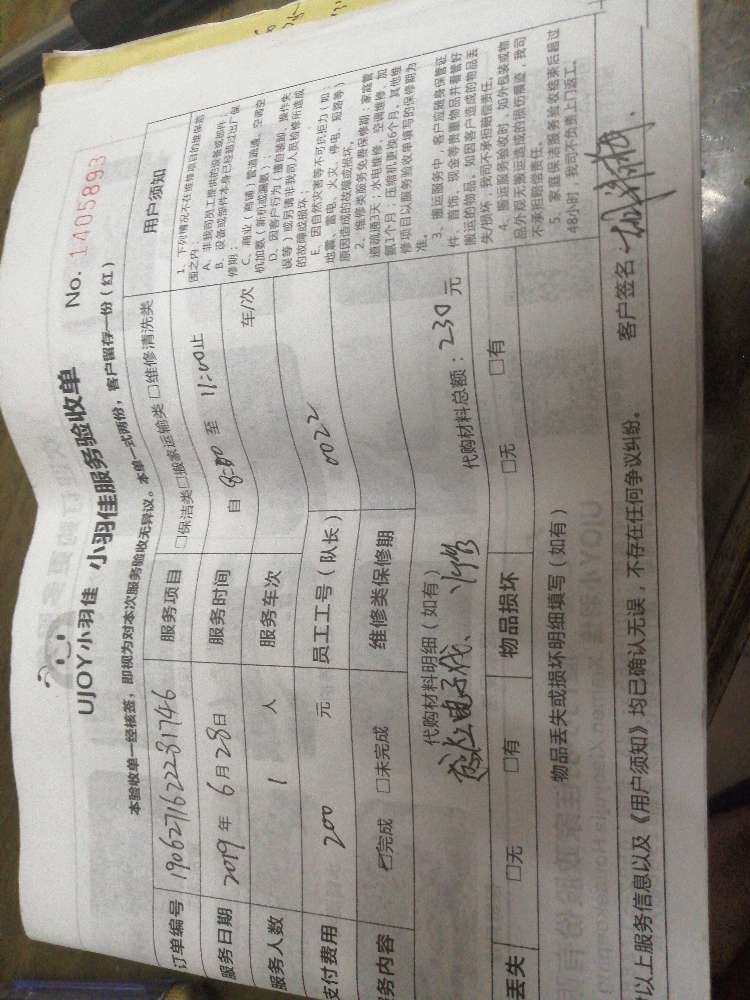 UJOY小羽佳 小羽佳服务验收单 No. 1405893
本验收单一经核签，即视为对本次服务验收无异议。本单一式两份，客户留存一份（红）
订单编号 19062716222 81746 服务项目 □保洁类□搬家运输类 □维修清洗类
服务日期 2019 年 6月28日 服务时间 自 8:00 至 11:00止
服务人数 1 人 服务车次 车/次
支付费用 200 元 员工工号（队长） 0022
务内容 ☑完成 □未完成 维修类保修期
代购材料明细（如有） 代购材料总额：230 元
丢失 □无 □有 物品损坏 □无 □有
物品丢失或损坏明细填写（如有）
用户须知
1、下列情况不在维修项目的维保范
围之内：
A、非我司员工提供的设备或部件；
B、设备或部件本身已经超过出厂保
修期；
C、商业（商铺）管道疏通、空调空
机加氨（新机或漏氨）
D、因客户行为（擅自装卸、操作失
误等）或另请非我司人员检修所造成
的故障或损坏；
E、因自然灾害等不可抗拒力（如
地震、雷电、火灾、停电、短路等）
原因造成的故障或损坏。
2、维修类服务免费保修期：家庭管
道疏通3天；水电维修、空调维修、加
氨1个月；压缩机更换6个月，其他维
修项目以服务验收单填写的保修期为
准。
3、搬运服务中，客户应随身保管证
件、首饰、现金等贵重物品并看管好
搬运的物品，如因客户造成的物品丢
失/损坏，我司不承担赔偿责任。
4、搬运服务验收时，如外包装或物
品外观无搬运造成的损伤痕迹，我司
不承担赔偿责任。
5、家庭保洁服务验收结束后超过
48小时，我司不负责上门返工。
以上服务信息以及《用户须知》均已确认无误，不存在任何争议纠纷。 客户签名